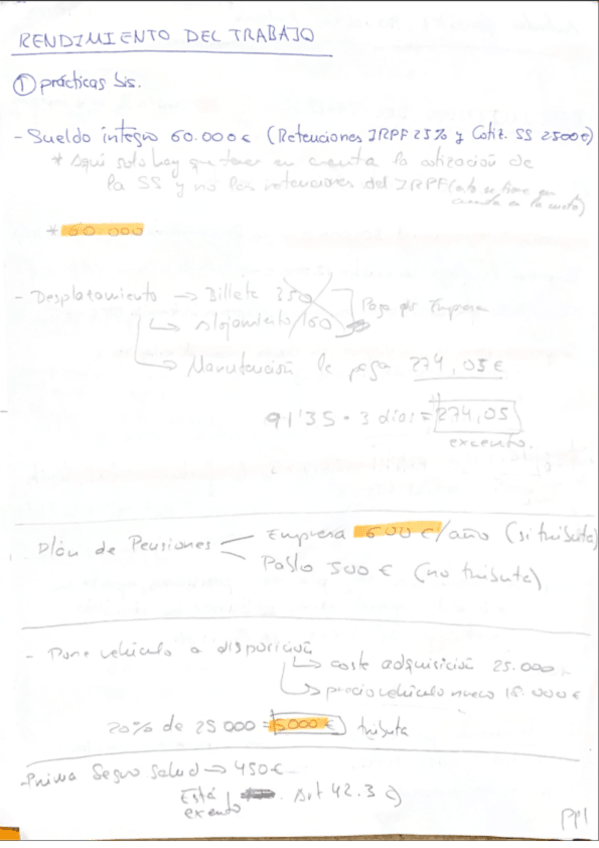 RENDIMIENTO DEL TRABAJO
① prácticas bis.
- Sueldo íntegro 60.000€ (Retenciones IRPF 25% y Cotiz. SS 2500€)
* Aquí solo hay que tener en cuenta la cotización de
la SS y no las retenciones del IRPF (esto se tiene en
cuenta en la cuota)
* 60.000
- Desplazamiento → Billete 250
↳ Alojamiento 160
Paga por Empresa
↳ Manutención le paga 274,05€
91'35 · 3 días = 274,05
excento.
Plan de Pensiones
Empresa 600 €/año (si tributa)
Pablo 500 € (no tributa)
- Pone vehículo a disposición
↳ coste adquisición 25.000
↳ precio vehículo nuevo 18.000€
20% de 25000 = 5000€ tributa
- Prima Seguro Salud → 450€
Está . Art 42.3 c)
exento
PP1